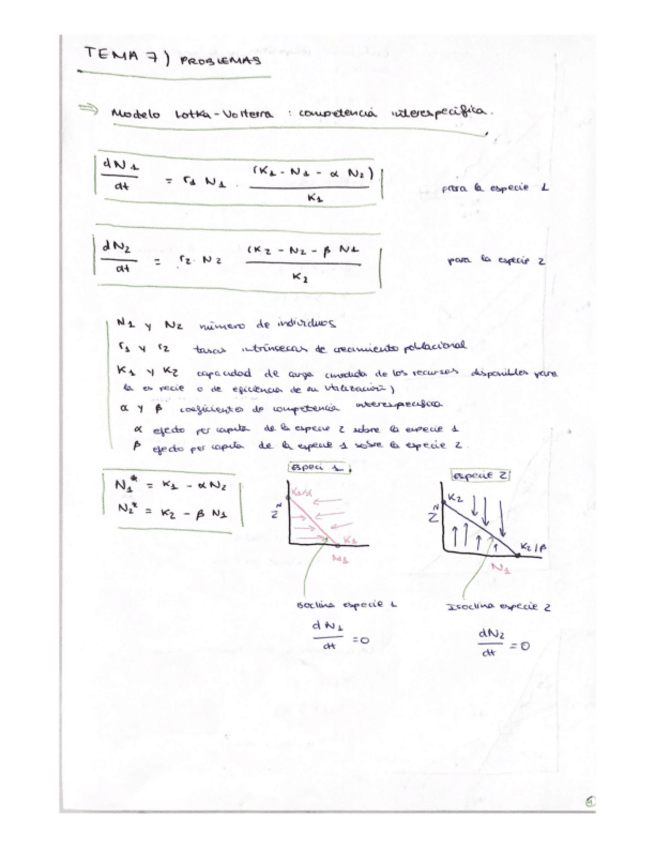 TEMA 7) PROBLEMAS
⇒ Modelo Lotka-Volterra : competencia interespecífica.
dN1/dt = r1 N1 · (K1 - N1 - α N2)/K1 para la especie 1
dN2/dt = r2 · N2 (K2 - N2 - β N1)/K2 para la especie 2
N1 y N2 número de individuos
r1 y r2 tasas intrínsecas de crecimiento poblacional
K1 y K2 capacidad de carga (medida de los recursos disponibles para
la especie o de eficiencia de su utilización)
α y β coeficientes de competencia interespecífica
α efecto per capita de la especie 2 sobre la especie 1
β efecto per capita de la especie 1 sobre la especie 2.
N1* = K1 - αN2
N2* = K2 - β N1
especi 1
K1/α
N2
K1
N1
Isoclina especie 1
dN1/dt = 0
especie 2
K2
N2
K2/β
N1
Isoclina especie 2
dN2/dt = 0